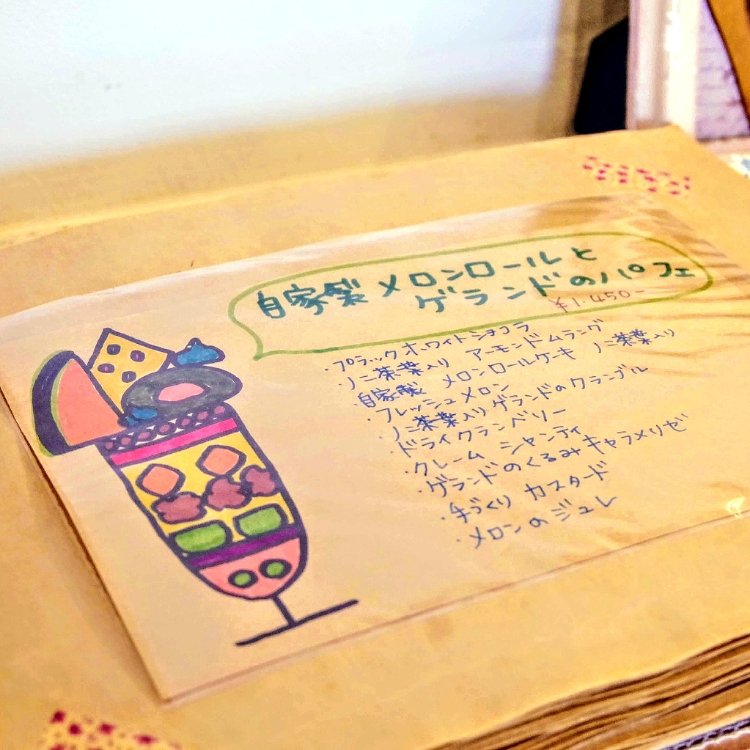 自家製 メロンロールと
ゲランドのパフェ
¥1.450-
・プラックオホワイトショコラ
・ノニ茶葉入り アーモンドムラング
・自家製 メロンロールケーキ ノニ茶葉入り
・フレッシュメロン
・ノニ茶葉入りゲランドのクランブル
・ドライクランベリー
・クレーム シャンティ
・ゲランドのくるみキャラメリゼ
・手づくり カスタード
・メロンのジュレ